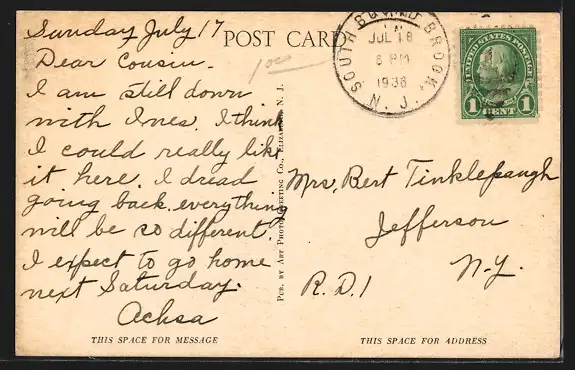 Sunday July 17
Dear Cousin.
I am still down
with Ines. I think
I could really like
it here. I dread
going back everything
will be so different.
I expect to go home
next Saturday.
Achsa
THIS SPACE FOR MESSAGE
POST CARD
100
PUB. BY ART PHOTO GREETING CO., ELIZABETH, N. J.
SOUTH BOUND BROOK,
N. J.
JUL 18
6 PM
1938
UNITED STATES POSTAGE
1 CENT 1
Mrs. Bert Tinklepaugh
Jefferson
N.Y.
R.D.1
THIS SPACE FOR ADDRESS